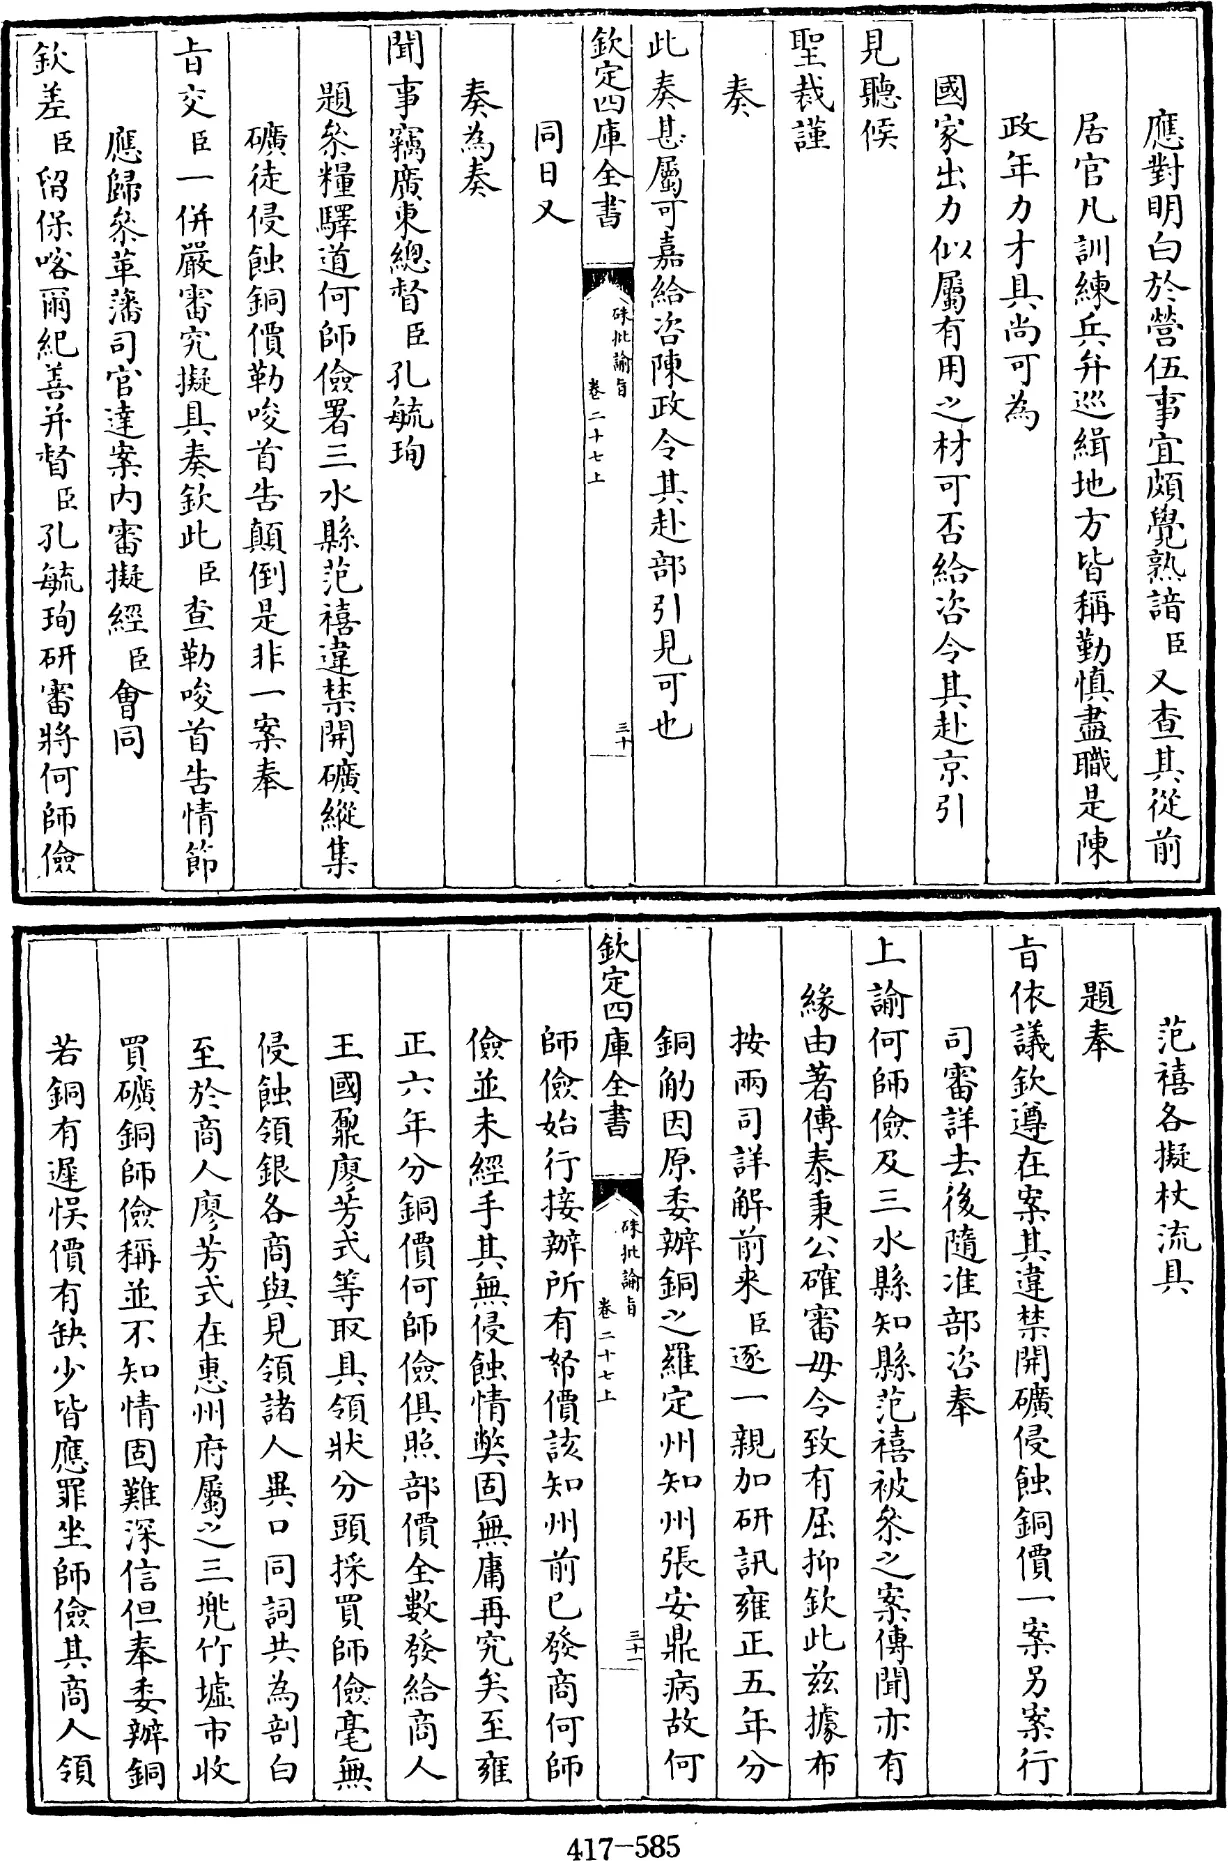 應對明白於營伍事宜頗覺熟諳臣又查其從前
居官凡訓練兵弁巡緝地方皆稱勤慎盡職是陳
政年力才具尚可為
國家出力似屬有用之材可否給咨令其赴京引
見聽候
聖裁謹
奏
此奏甚屬可嘉給咨陳政令其赴部引見可也
欽定四庫全書
硃批諭旨
卷二十七上
三十
同日又
奏為奏
聞事竊廣東總督臣孔毓珣
題叅糧驛道何師儉署三水縣范禧違禁開礦縱集
礦徒侵蝕銅價勒唆首告顛倒是非一案奉
旨交臣一併嚴審究擬具奏欽此臣查勒唆首告情節
應歸叅革藩司官達案内審擬經臣會同
欽差臣留保喀爾紀善并督臣孔毓珣研審將何師儉
范禧各擬杖流具
題奉
旨依議欽遵在案其違禁開礦侵蝕銅價一案另案行
司審詳去後隨准部咨奉
上諭何師儉及三水縣知縣范禧被叅之案傳聞亦有
緣由著傅泰秉公確審毋令致有屈抑欽此兹據布
按兩司詳解前来臣逐一親加研訊雍正五年分
銅觔因原委辦銅之羅定州知州張安鼎病故何
欽定四庫全書
硃批諭旨
卷二十七上
三十一
師儉始行接辦所有帑價該知州前已發商何師
儉並未經手其無侵蝕情弊固無庸再究矣至雍
正六年分銅價何師儉俱照部價全數發給商人
王國鼐廖芳式等取具領狀分頭採買師儉毫無
侵蝕領銀各商與見領諸人異口同詞共為剖白
至於商人廖芳式在惠州府屬之三兠竹墟市收
買礦銅師儉稱並不知情固難深信但奉委辦銅
若銅有遲悞價有缺少皆應罪坐師儉其商人領
417-585